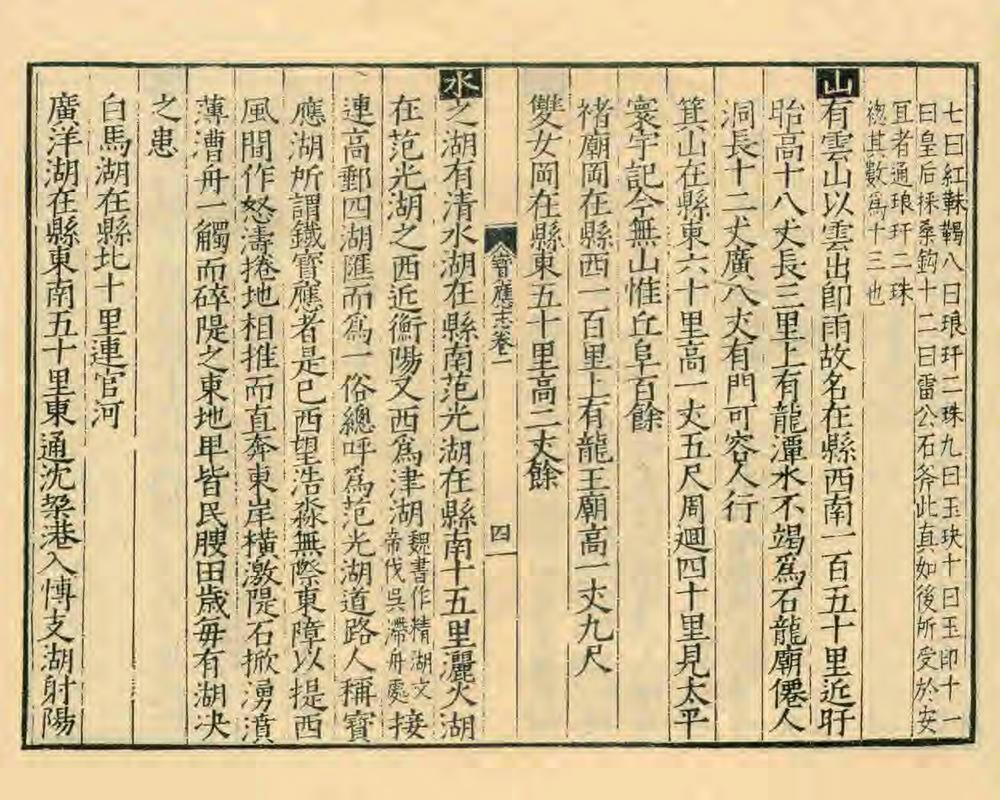 七曰紅靺鞨八曰琅玕二珠九曰玉玦十曰玉印十一
曰皇后採桑鈎十二曰雷公石斧此真如後所受於安
宜者通琅玕二珠
總其數爲十三也
山有雲山以雲出卽雨故名在縣西南一百五十里近盱
眙高十八丈長三里上有龍潭水不竭爲石龍廟僊人
洞長十二丈廣八丈有門可容人行
箕山在縣東六十里高一丈五尺周迴四十里見太平
寰宇記今無山惟丘阜百餘
褚廟岡在縣西一百里上有龍王廟高一丈九尺
雙女岡在縣東五十里高二丈餘
寶應志卷一
四
水之湖有清水湖在縣南范光湖在縣南十五里灑火湖
在范光湖之西近衡陽又西爲津湖魏書作精湖文帝伐吳滯舟處接
連高郵四湖匯而爲一俗總呼爲范光湖道路人稱寶
應湖所謂鐵寶應者是已西望浩淼無際東障以堤西
風間作怒濤捲地相推而直奔東岸橫激隄石掀湧濆
薄漕舟一觸而碎隄之東地卑皆民腴田歲每有湖决
之患
白馬湖在縣北十里連官河
廣洋湖在縣東南五十里東通沈㮮港入博支湖射陽